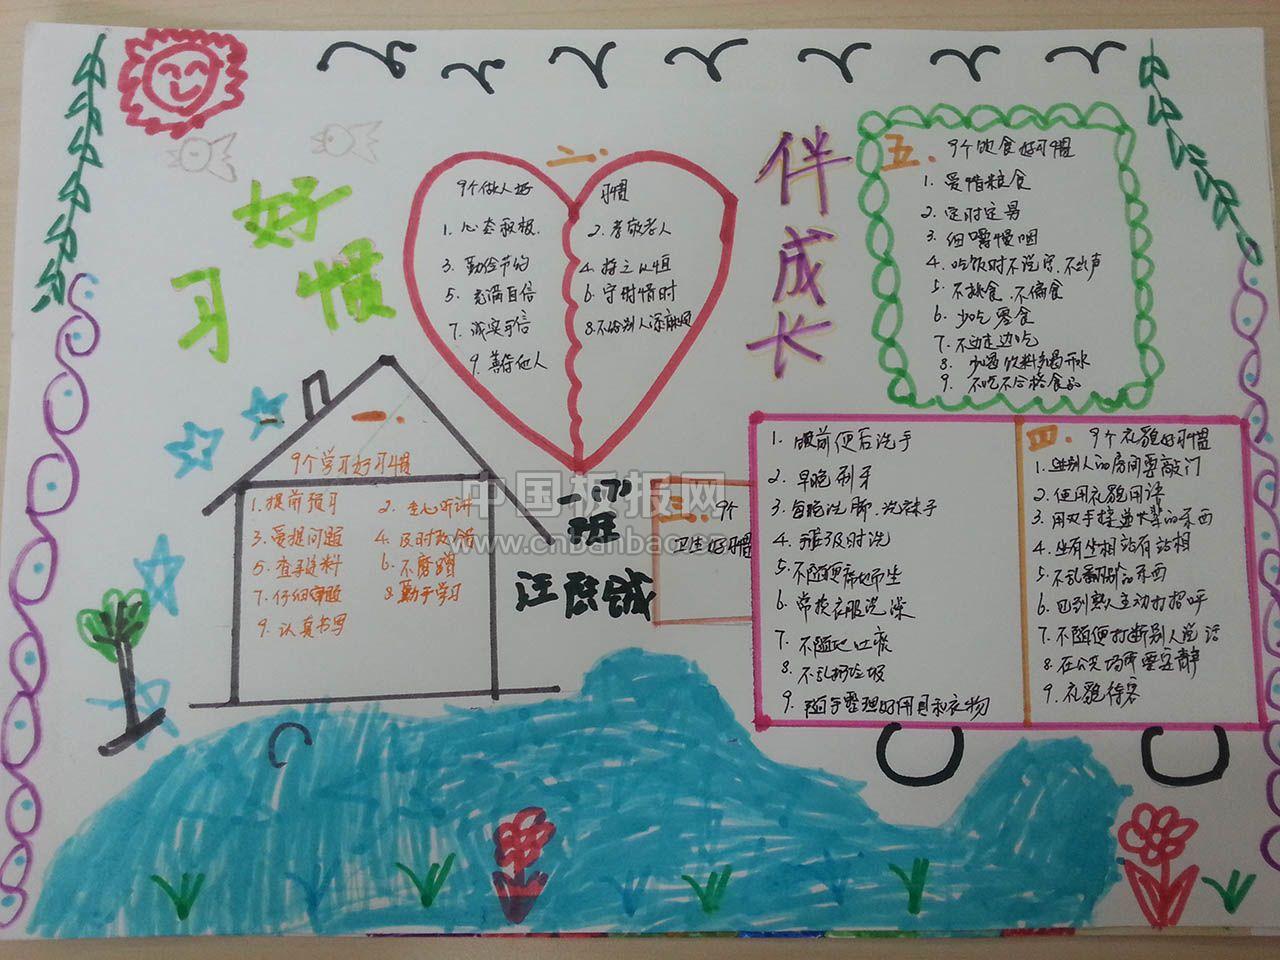 好
习惯
伴成长
一.
9个学习好习惯
1.提前预习
2.专心听讲
3.爱提问题
4.及时改错
5.查寻资料
6.不磨蹭
7.仔细审题
8.勤于学习
9.认真书写
二.
9个做人好习惯
1.心态积极.
2.孝敬老人
3.勤俭节约
4.持之以恒
5.充满自信
6.守时惜时
7.诚实守信
8.不给别人添麻烦
9.善待他人
一小
班
三.9个
卫生好习惯
1.饭前便后洗手
2.早晚刷牙
3.每晚洗脚.洗袜子
4.及时洗
6.常换衣服洗澡
7.不随地吐痰
8.不乱扔垃圾
9.随手整理好用具和衣物
四.9个礼貌好习惯
1.进别人的房间要敲门
2.使用礼貌用语
3.用双手接递大辈的东西
4.坐有坐相站有站相
5.不乱翻别的东西
6.见到熟人主动打招呼
7.不随便打断别人说话
8.在公共场所要安静
9.礼貌待客
五.9个饮食好习惯
1.爱惜粮食
2.定时定量
3.细嚼慢咽
4.吃饭时不说字.不出声
5.不挑食.不偏食
6.少吃零食
7.不边走边吃
8.少喝饮料多喝开水
9.不吃不合格食品
中国板报网
www.cnbanbao.cn